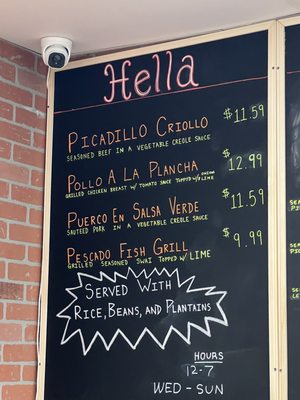 Hella
PICADILLO CRIOLLO $11.59
SEASONED BEEF IN A VEGETABLE CREOLE SAUCE
POLLO A LA PLANCHA $12.99
GRILLED CHICKEN BREAST W/ TOMATO SAUCE TOPPED W/ ONION LIME
PUERCO EN SALSA VERDE $11.59
SAUTEED PORK IN A VEGETABLE CREOLE SAUCE
PESCADO FISH GRILL $9.99
GRILLED SEASONED SWAI TOPPED W/ LIME
SERVED WITH
RICE, BEANS, AND PLANTAINS
HOURS
12-7
WED - SUN